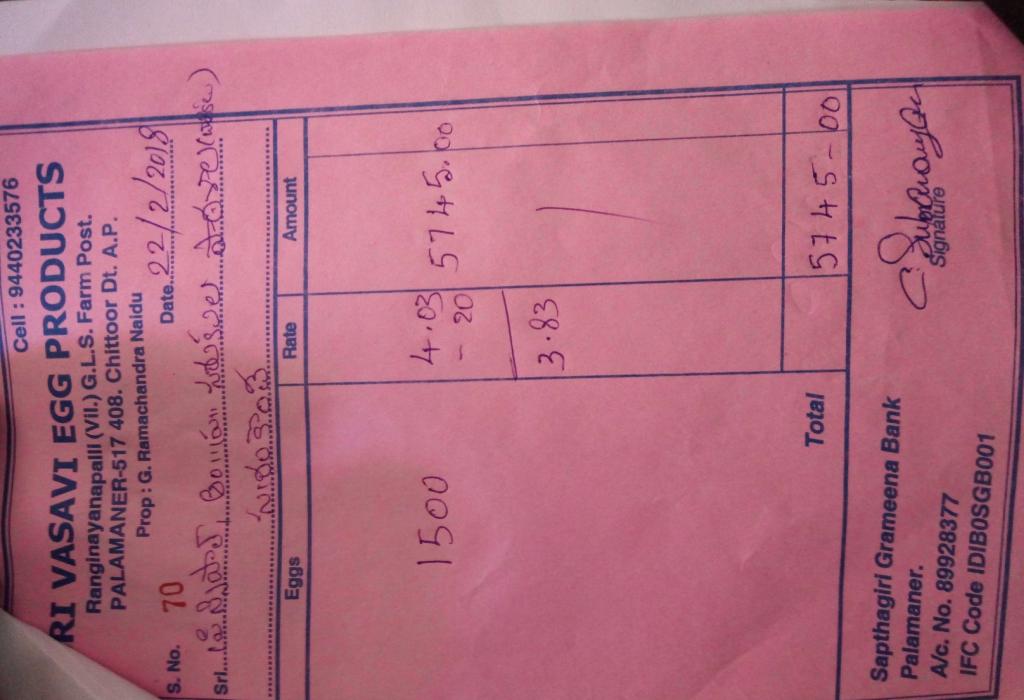 Cell : 9440233576
RI VASAVI EGG PRODUCTS
Ranginayanapalli (Vil.) G.L.S. Farm Post.
PALAMANER-517 408. Chittoor Dt. A.P.
Prop : G. Ramachandra Naidu
S. No. 70 Date 22/2/2018
Sri.
Eggs Rate Amount
1500 4.03 5745.00
- 20
3.83
Total 5745-00
Sapthagiri Grameena Bank
Palamaner.
A/c. No. 89928377
IFC Code IDIB0SGB001
Signature